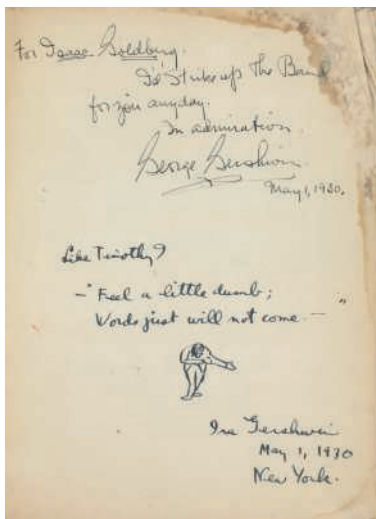 For Isaac Goldberg.
I'd strike up the Band
for you anyday.
In admiration
George Gershwin
May 1, 1930.
Like Timothy?
—"Feel a little dumb;
Words just will not come —"
Ira Gershwin
May 1, 1930
New York.